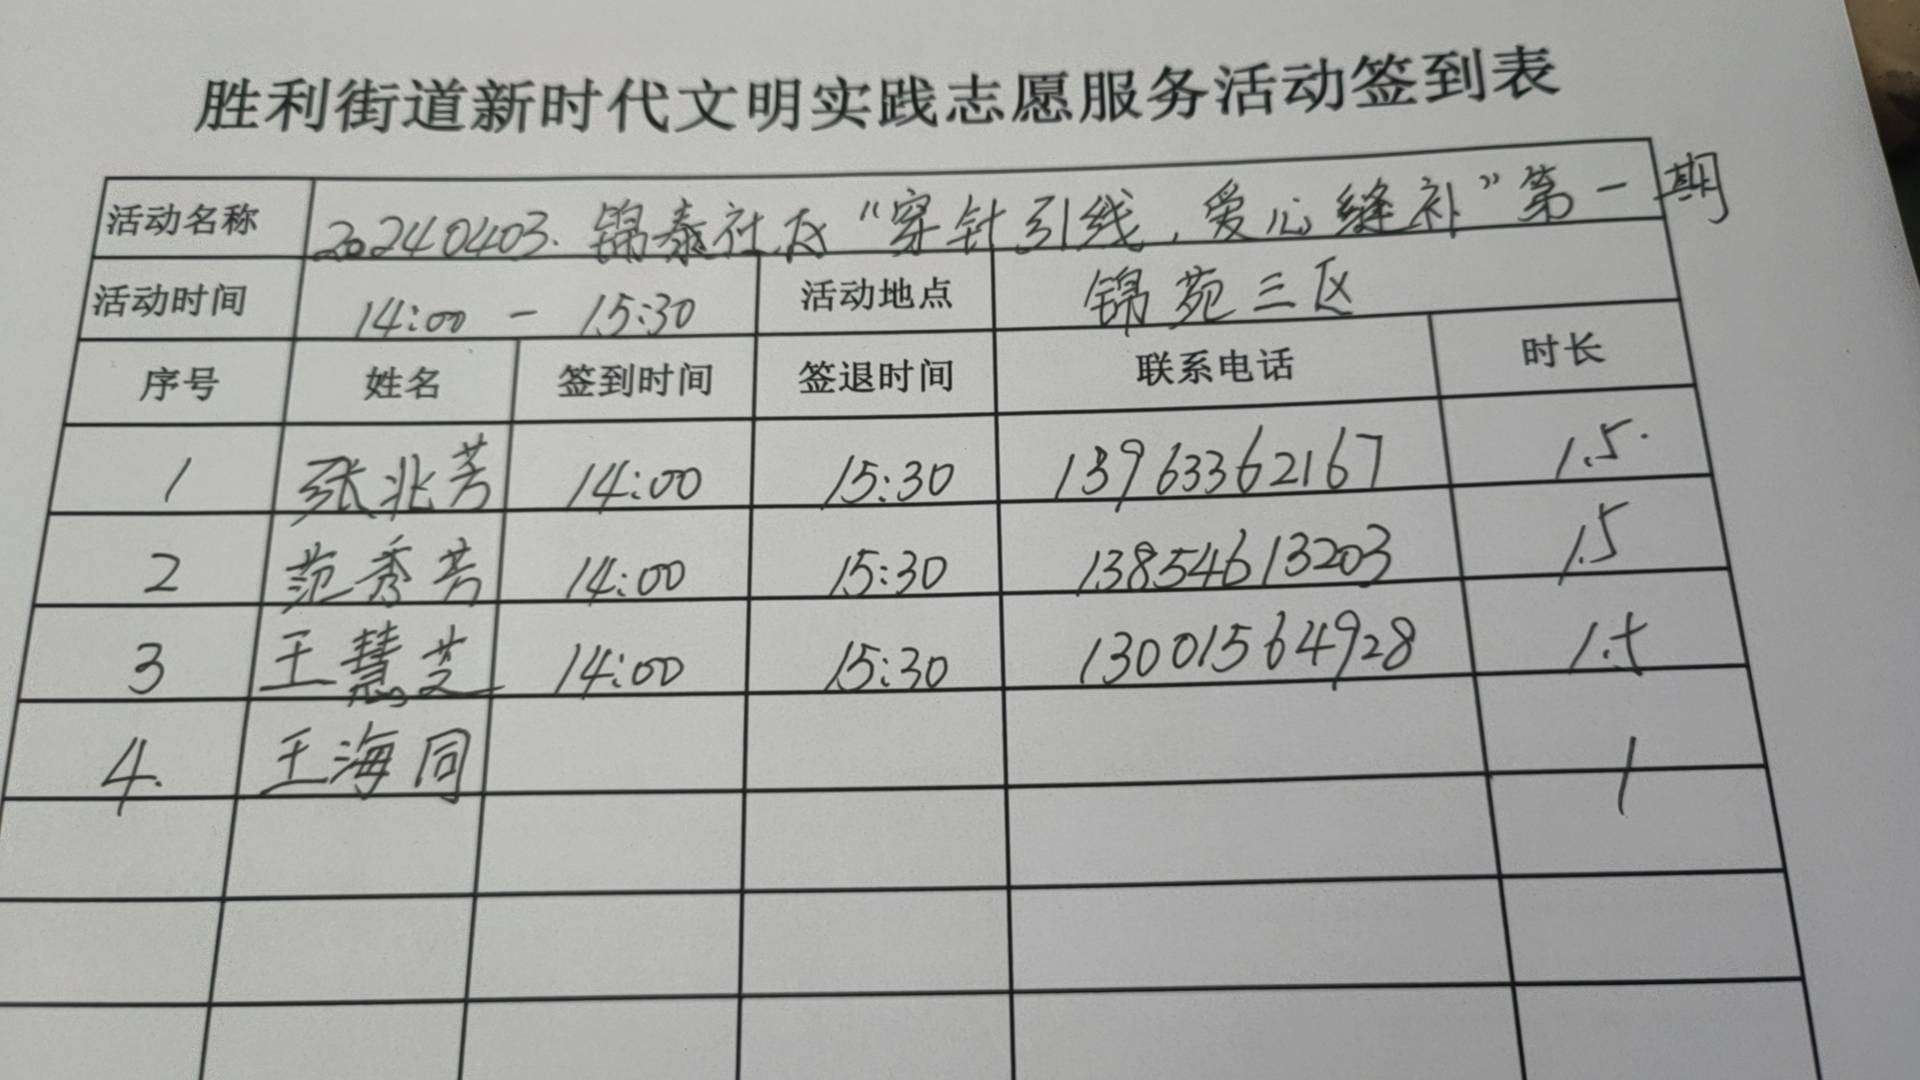 胜利街道新时代文明实践志愿服务活动签到表
活动名称 20240403.锦泰社区“穿针引线,爱心缝补”第一期
活动时间 14:00 - 15:30 活动地点 锦苑三区
序号 姓名 签到时间 签退时间 联系电话 时长
1 张兆芳 14:00 15:30 13963362167 1.5.
2 范秀芳 14:00 15:30 13854613203 1.5
3 王慧芝 14:00 15:30 13001564928 1.5
4. 王海同 1